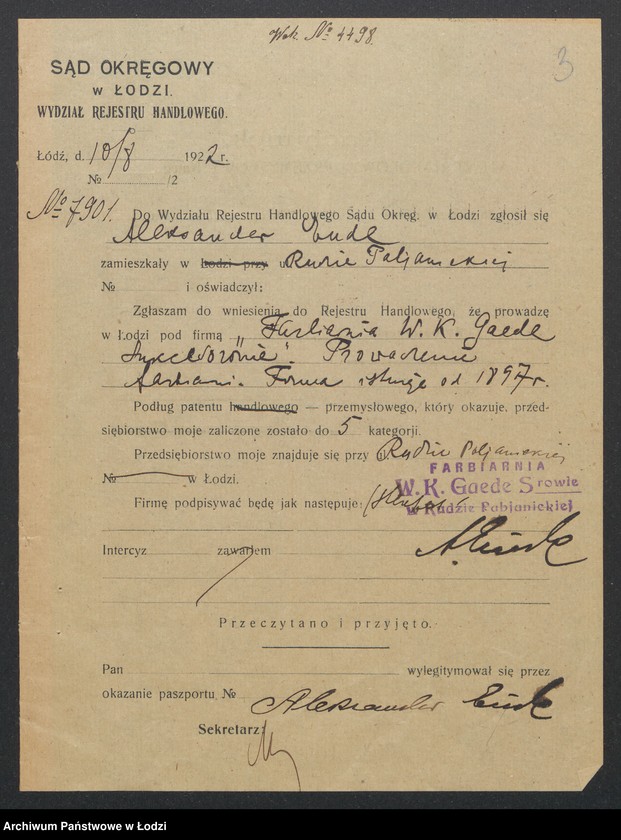 Wok. № 4498.
3
SĄD OKRĘGOWY
w ŁODZI.
WYDZIAŁ REJESTRU HANDLOWEGO.
Łódź, d. 10/8 1922 r.
№ /2
№ 7901.
Do Wydziału Rejestru Handlowego Sądu Okręg. w Łodzi zgłosił się
Aleksander Ende
zamieszkały w Łodzi przy u Rudzie Pabjanickiej
№ i oświadczył:
Zgłaszam do wniesienia do Rejestru Handlowego, że prowadzę
w Łodzi pod firmą „Farbiarnia W. K. Gaede
Sukcesorowie". Prowadzenie
farbiarni. Firma istnieje od 1897 r.
Podług patentu handlowego — przemysłowego, który okazuje, przed-
siębiorstwo moje zaliczone zostało do 5 kategorji.
Przedsiębiorstwo moje znajduje się przy Rudzie Pabjanickiej
№ w Łodzi.
FARBIARNIA
W. K. Gaede S-rowie
w Rudzie Pabjanickiej
Firmę podpisywać będę jak następuje:
A. Ende
Intercyz zawarłem
Przeczytano i przyjęto.
Pan wylegitymował się przez
okazanie paszportu №
Aleksander Ende
Sekretarz:
Archiwum Państwowe w Łodzi